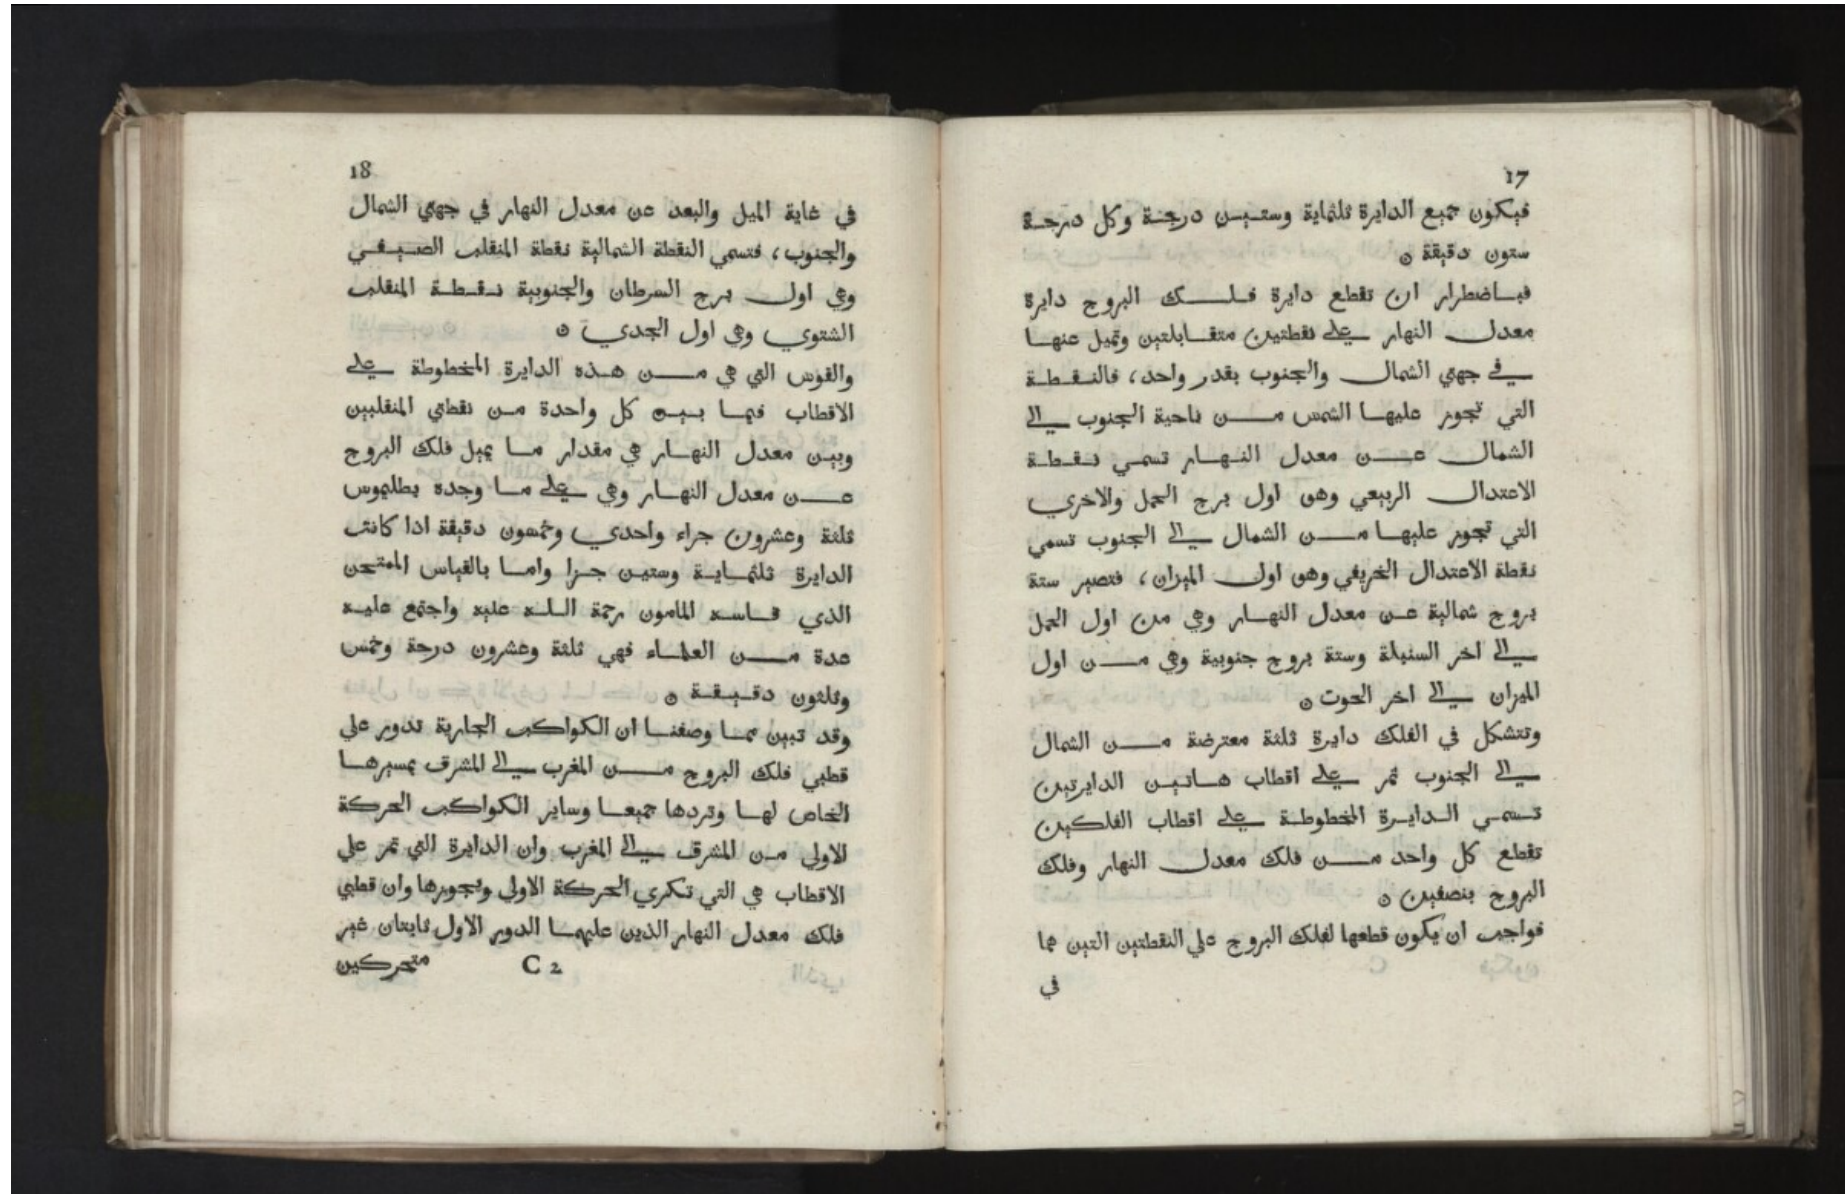 17
فيكون جميع الدايرة ثلثماية وستين درجة وكل درجة
ستون دقيقة ۞
فباضطرار ان تقطع دايرة فلك البروج دايرة
معدل النهار علي نقطتين متقابلتين وتميل عنها
في جهتي الشمال والجنوب بقدر واحد، فالنقطة
التي تجوز عليها الشمس من ناحية الجنوب الي
الشمال عن معدل النهار تسمي نقطة
الاعتدال الربيعي وهو اول برج الحمل والاخري
التي تجوز عليها من الشمال الي الجنوب تسمي
نقطة الاعتدال الخريفي وهو اول الميزان، فتصير ستة
بروج شمالية عن معدل النهار وهي من اول الحمل
الي اخر السنبلة وستة بروج جنوبية وهي من اول
الميزان الي اخر الحوت ۞
وتتشكل في الفلك دايرة ثلثة معترضة من الشمال
الي الجنوب تمر علي اقطاب هاتين الدايرتين
تسمي الدايرة المخطوطة علي اقطاب الفلكين
تقطع كل واحد من فلك معدل النهار وفلك
البروج بنصفين ۞
فواجب ان يكون قطعها لفلك البروج علي النقطتين التين هما
في
18
في غاية الميل والبعد عن معدل النهار في جهتي الشمال
والجنوب، فتسمي النقطة الشمالية نقطة المنقلب الصيفي
وهي اول برج السرطان والجنوبية نقطة المنقلب
الشتوي وهي اول الجدي ۞
والقوس التي هي من هذه الدايرة المخطوطة علي
الاقطاب فيما بين كل واحدة من نقطتي المنقلبين
وبين معدل النهار هي مقدار ما يميل فلك البروج
عن معدل النهار وهي علي ما وجده بطليموس
ثلثة وعشرون جزاء واحدي وخمسون دقيقة اذا كانت
الدايرة ثلثماية وستين جزا واما بالقياس الممتحن
الذي قاسه المامون رحمة الله عليه واجتمع عليه
عدة من العلماء فهي ثلثة وعشرون درجة وخمس
وثلثون دقيقة ۞
وقد تبين مما وصفنا ان الكواكب الجارية تدور علي
قطبي فلك البروج من المغرب الي المشرق بمسيرها
الخاص لها وتردها جميعا وساير الكواكب الحركة
الاولي من المشرق الي المغرب وان الدايرة التي تمر علي
الاقطاب هي التي تكري الحركة الاولي وتجوزها وان قطبي
فلك معدل النهار الذين عليهما الدور الاول ثابتان غير
C 2 متحركين